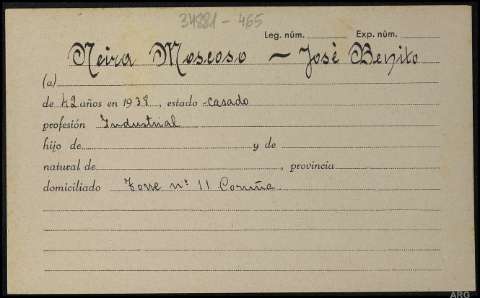 34881-465
Leg. núm. Exp. núm.
Neira Moscoso - José Benito
(a)
de 42 años en 1938, estado casado
profesión Industrial
hijo de y de
natural de , provincia
domiciliado Torre nº 11 Coruña.
ARG